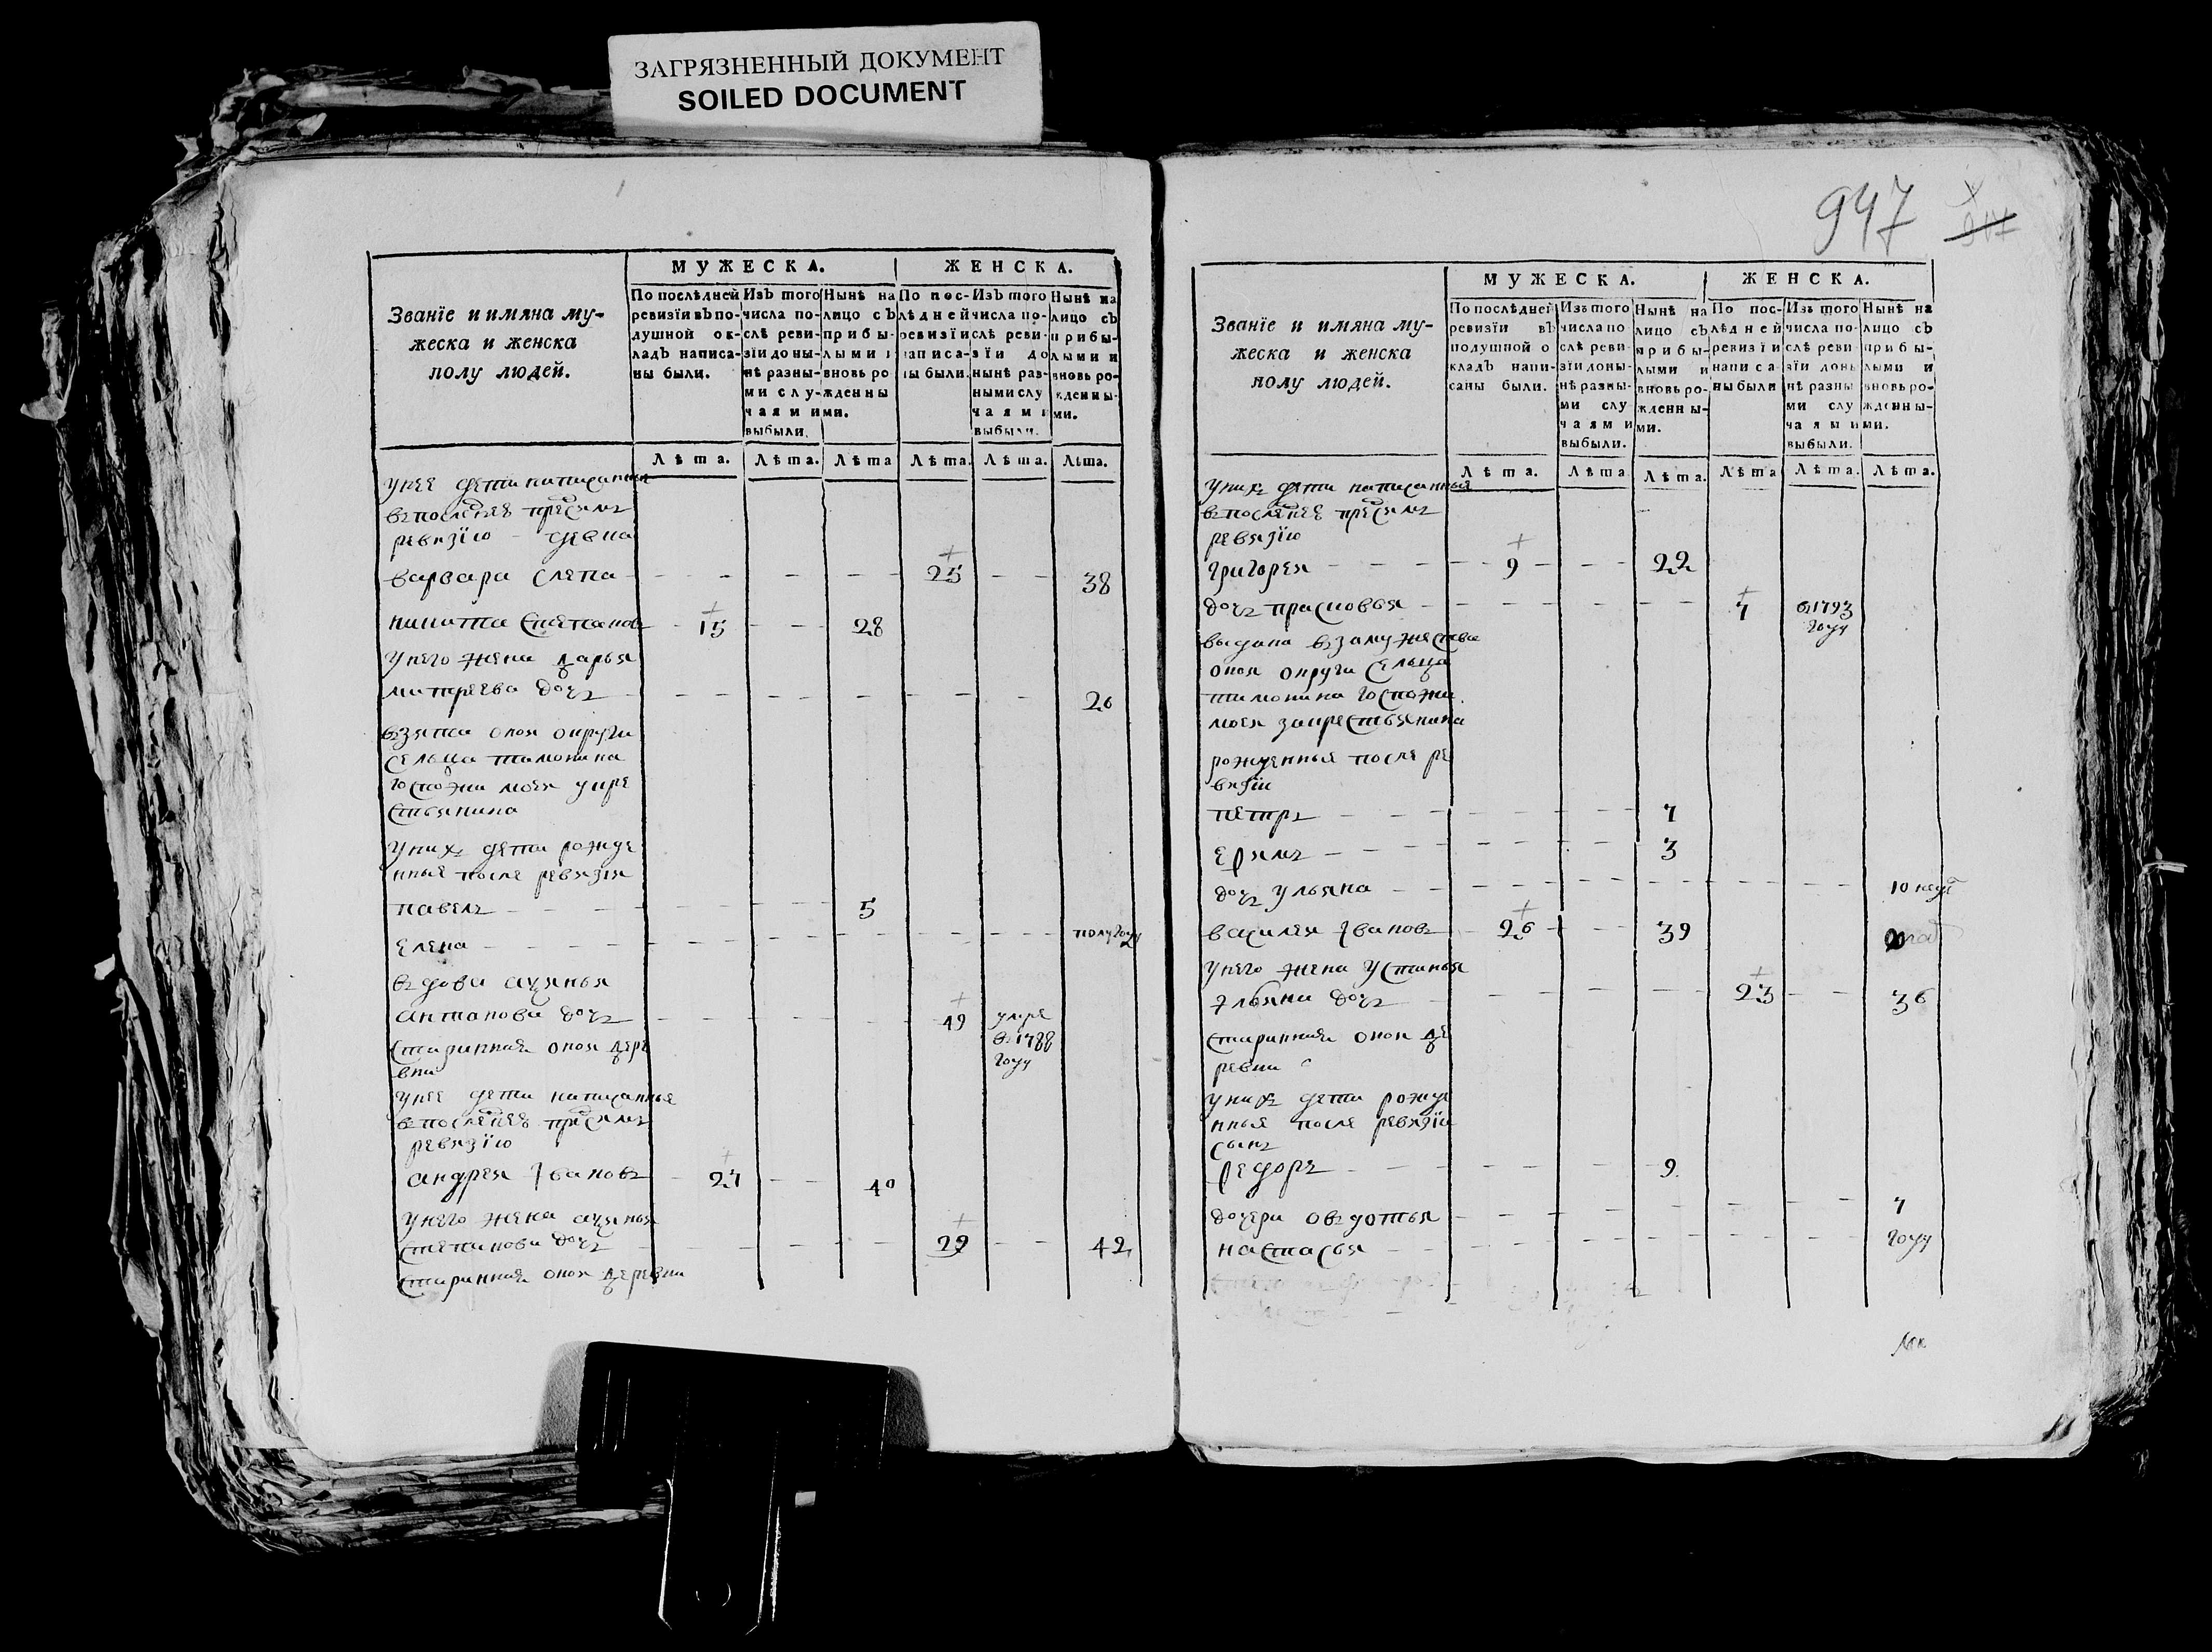 ЗАГРЯЗНЕННЫЙ ДОКУМЕНТ
SOILED DOCUMENT
Званїе и имяна му-
жеска и женска
полу людей.
МУЖЕСКА.
ЖЕНСКА.
По послѣдней
ревизїи въ по-
душной ок-
ладъ написа-
ны были.
Изъ того
числа по-
слѣ реви-
зїи доны-
нѣ разны-
ми слу-
чаями
выбыли.
Нынѣ на
лицо съ
прибы-
лыми и
вновь ро
жденны
ми.
По пос-
лѣдней
ревизїи
написа-
ны были.
Изъ того
числа по-
слѣ реви-
зїи до
нынѣ раз-
ными слу
чаями
выбыли.
Нынѣ на
лицо съ
прибы-
лыми и
вновь ро-
жденны-
ми.
Лѣта. Лѣта. Лѣта Лѣта. Лѣта. Лѣта.
унее дети написанныя
въ последнею пред симъ
ревизїю - девка
варвара слепа - 25 - 38
никита степановъ 15 - 28
у него жена дарья
митреева дочь - 20
взята оной округи
сельца тимонина
госпожи моей у кре
стьянина
у них дети рожде
нные после ревизїи
павелъ - 5
елена - полугоду
вдова аксинья
антипова дочь - 49 умре
въ 1788
году
старинная оной дере
вни
унее дети написанные
въ последнею пред симъ
ревизїю
андрей ивановъ - 27 - 40
у него жена аксинья
степанова дочь - 29 - 42
старинная оной деревни
947
Званїе и имяна му-
жеска и женска
полу людей.
МУЖЕСКА.
ЖЕНСКА.
По послѣдней
ревизїи въ
подушной о
кладъ напи-
саны были.
Изъ того
числа по
слѣ реви-
зїи доны-
нѣ разны-
ми слу
чаями
выбыли.
Нынѣ на
лицо съ
прибы-
лыми и
вновь ро-
жденны-
ми.
По пос-
лѣдней
ревизїи
написа-
ны были
Изъ того
числа по-
слѣ реви
зїи донь
нѣ разны
ми слу
чаями
выбыли.
Нынѣ на
лицо съ
прибы-
лыми и
вновь ро-
жденны-
ми.
Лѣта. Лѣта Лѣта. Лѣта Лѣта. Лѣта.
у них дети написанныя
въ последнею пред симъ
ревизїю
григорей - 9 - 22
дочь прасковья - 7 въ 1793
году
выдана в замужество
оной округи сельца
тимонина госпожи
моей за крестьянина
рожденные после ре
визїи
петръ - 7
ефимъ - 3
дочь ульяна - 10 недѣ
василей ивановъ 26 - 39
у него жена устинья
ульяна дочь - 23 - 36
старинная оной де
ревни
у них дети рожде
нные после ревизїи
сынъ
федоръ - 9
дочери овдотья - 7
настасья - году